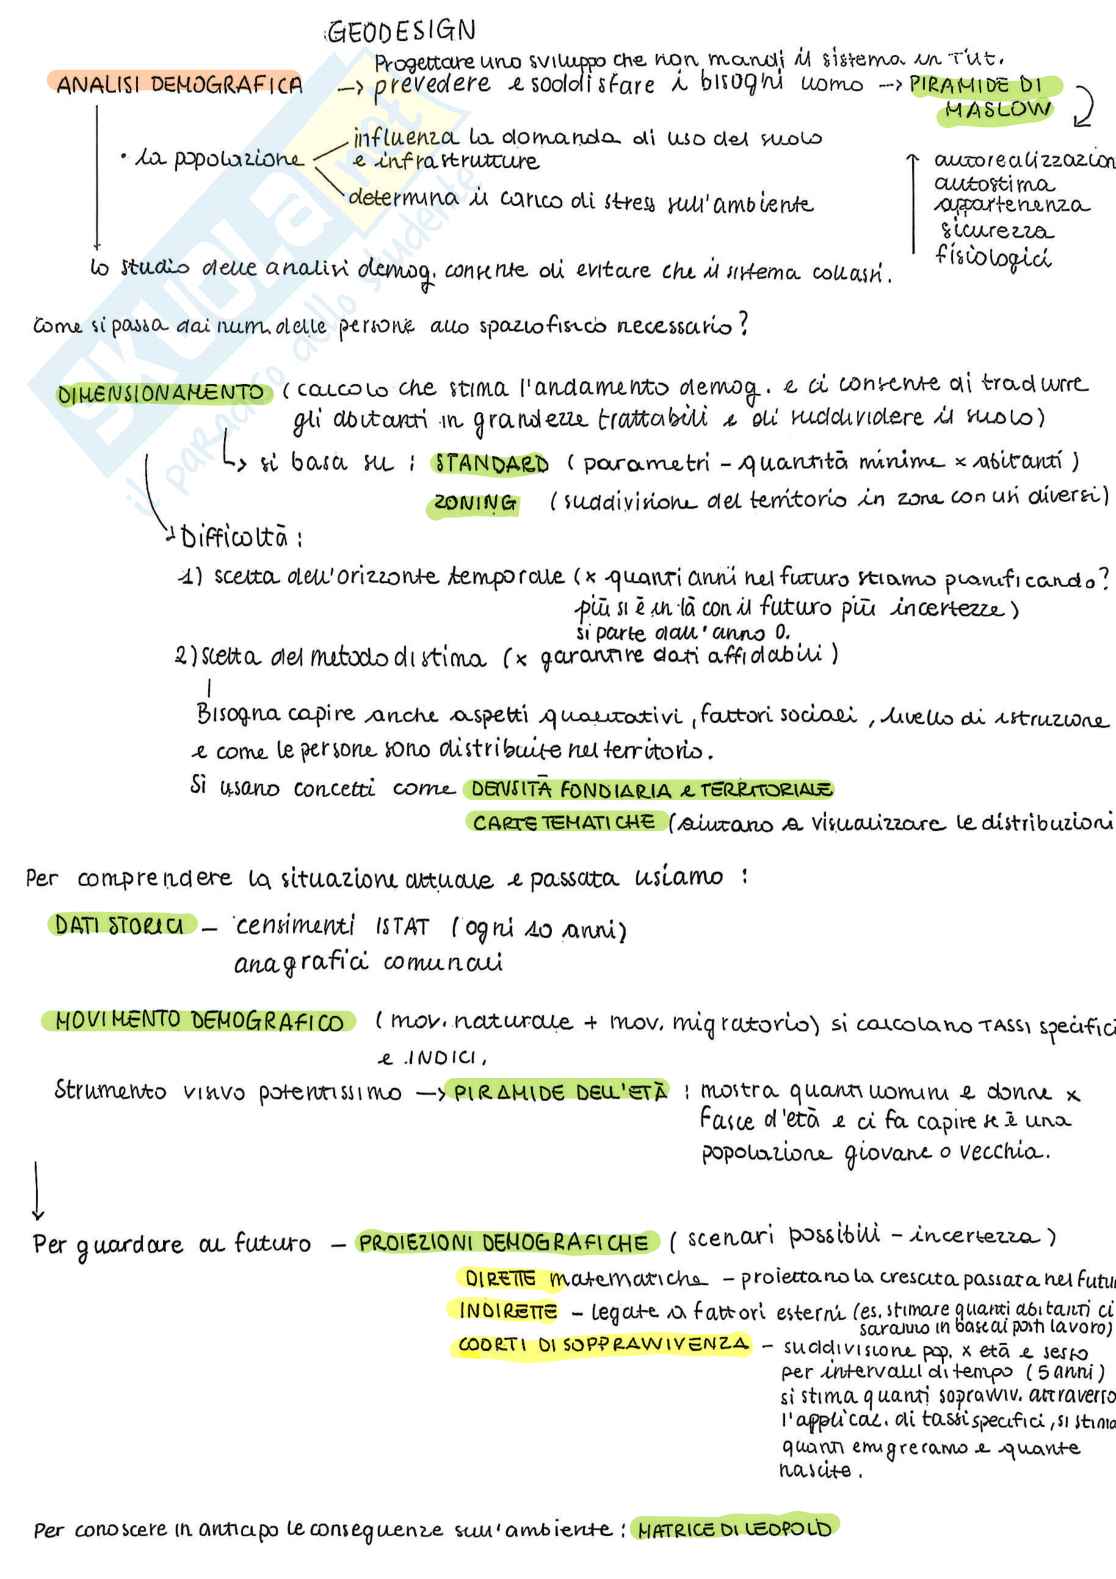 GEODESIGN
Progettare uno sviluppo che non mandi il sistema in Tilt.
ANALISI DEMOGRAFICA → prevedere e soddisfare i bisogni uomo → PIRAMIDE DI
MASLOW
• la popolazione
influenza la domanda di uso del suolo
e infrastrutture
determina il carico di stress sull'ambiente
autorealizzazion
autostima
appartenenza
sicurezza
fisiologici
lo studio delle analisi demog. consente di evitare che il sistema collassi.
Come si passa dai num. delle persone allo spazio fisico necessario?
DIMENSIONAMENTO (calcolo che stima l'andamento demog. e ci consente di tradurre
gli abitanti in grandezze trattabili e di suddividere il suolo)
↳ si basa su : STANDARD (parametri - quantità minime x abitanti)
ZONING (suddivisione del territorio in zone con usi diversi)
Difficoltà :
1) scelta dell'orizzonte temporale (x quanti anni nel futuro stiamo pianificando?
più si è in là con il futuro più incertezze)
si parte dall'anno 0.
2) scelta del metodo di stima (x garantire dati affidabili)
Bisogna capire anche aspetti qualitativi, fattori sociali, livello di istruzione
e come le persone sono distribuite nel territorio.
Si usano concetti come DENSITÀ FONDIARIA e TERRITORIALE
CARTE TEMATICHE (aiutano a visualizzare le distribuzioni
Per comprendere la situazione attuale e passata usiamo :
DATI STORICI - censimenti ISTAT (ogni 10 anni)
anagrafici comunali
MOVIMENTO DEMOGRAFICO (mov. naturale + mov. migratorio) si calcolano TASSI specifici
e INDICI.
Strumento visivo potentissimo → PIRAMIDE DELL'ETÀ : mostra quanti uomini e donne x
Fasce d'età e ci fa capire se è una
popolazione giovane o vecchia.
Per guardare al futuro - PROIEZIONI DEMOGRAFICHE (scenari possibili - incertezza)
DIRETTE matematiche - proiettano la crescita passata nel futur
INDIRETTE - legate a fattori esterni (es. stimare quanti abitanti ci
saranno in base ai posti lavoro)
COORTI DI SOPPRAVVIVENZA - suddivisione pop. x età e sesso
per intervalli di tempo (5 anni)
si stima quanti sopravviv. attraverso
l'applicaz. di tassi specifici, si stima
quanti emigreranno e quante
nascite.
Per conoscere in anticipo le conseguenze sull'ambiente : MATRICE DI LEOPOLD
SKUOLA.net
il paradiso dello studente